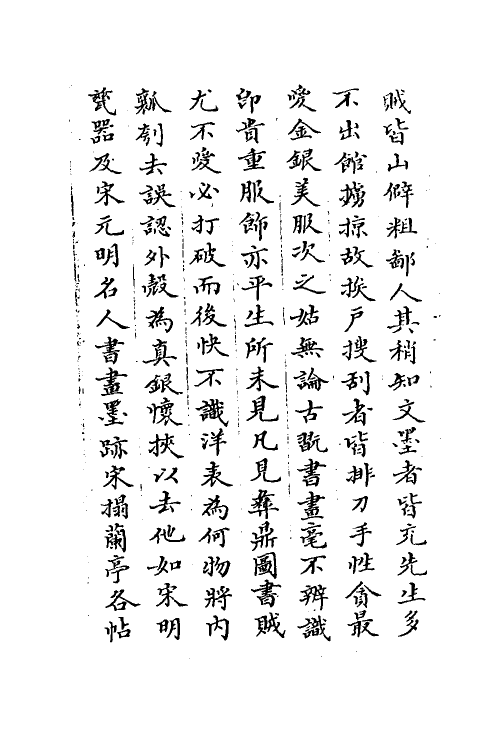 賊皆山僻粗鄙人其稍知文墨者皆充先生多
不出館擄掠故挨戶搜刮者皆排刀手性貪最
愛金銀美服次之姑無論古翫書畫毫不辨識
卽貴重服飾亦平生所未見凡見彝鼎圖書賊
尤不愛必打破而後快不識洋表為何物將內
瓤刳去誤認外殼為真銀懷挾以去他如宋明
甆器及宋元明名人書畫墨跡宋搨蘭亭各帖